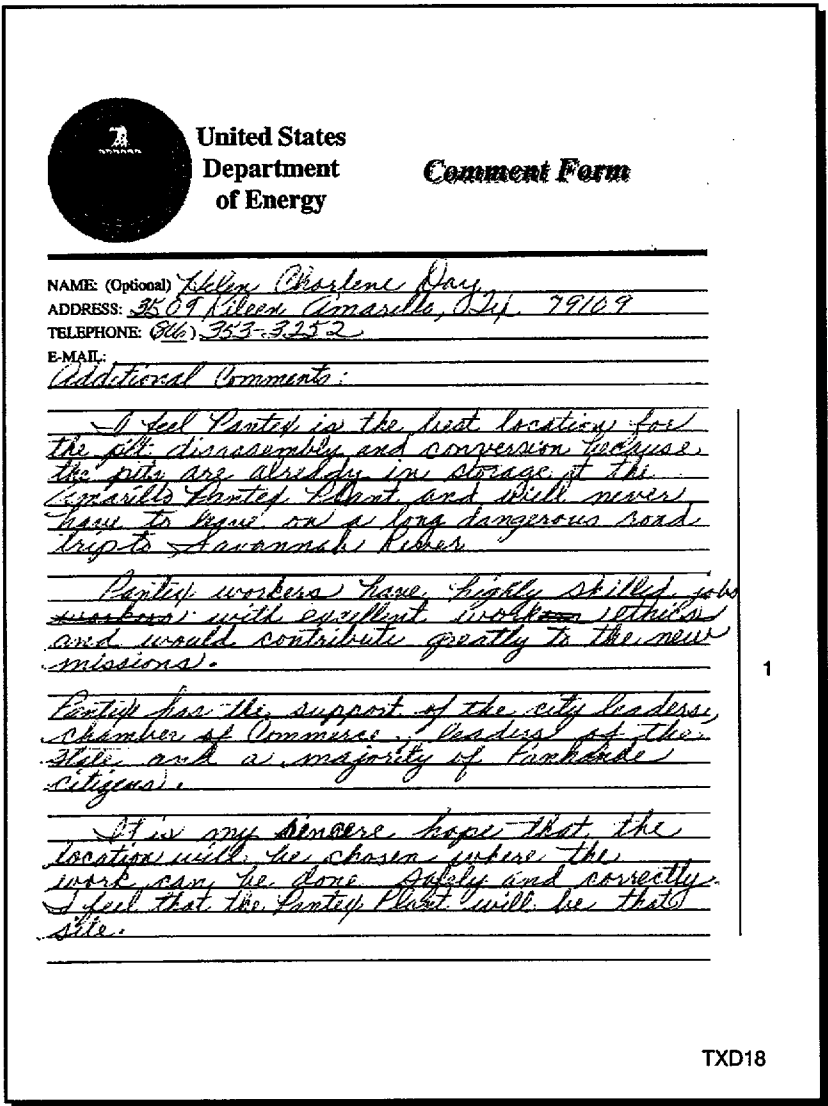 United States
Department
of Energy
Comment Form
NAME: (Optional) Helen Charlene Day
ADDRESS: 3509 Kileen Amarillo, Tx. 79109
TELEPHONE: (806) 353-3252
E-MAIL:
Additional Comments:
I feel Pantex is the best location for
the pit disassembly and conversion because
the pits are already in storage at the
Amarillo Pantex Plant and will never
have to leave on a long dangerous road
trip to Savannah River
Pantex workers have highly skilled jobs
workers with excellent work ethics
and would contribute greatly to the new
missions.
Pantex has the support of the city leaders,
chamber of Commerce, leaders of the
State and a majority of Panhandle
citizens.
It is my sincere hope that the
location will be chosen where the
work can be done safely and correctly.
I feel that the Pantex Plant will be that
site.
1
TXD18